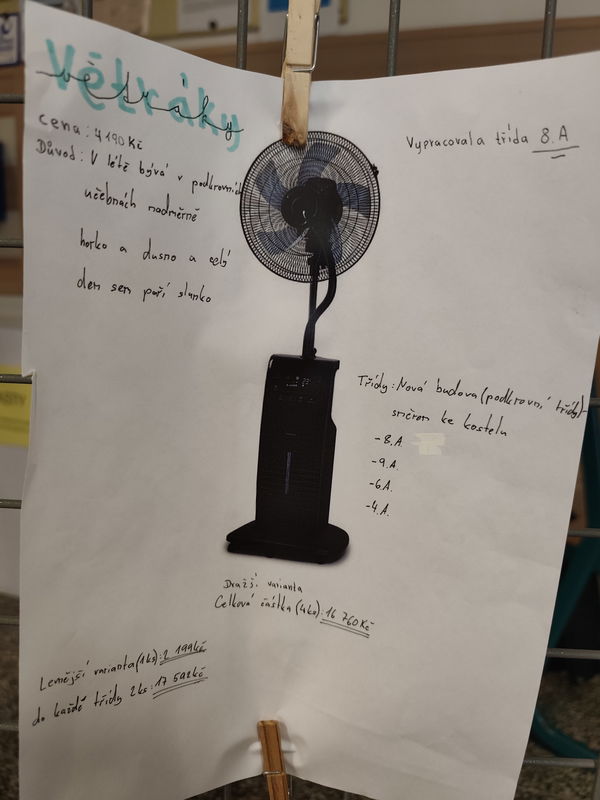 Větráky
větráky
cena: 4190Kč
Důvod: V létě bývá v podkrovních
učebnách nadměrně
horko a dusno a celý
den sem paří slunko
Vypracovala třída 8.A
Třídy: Nová budova (podkrovní třídy)-
směrem ke kostelu
-8.A.
-9.A.
-6.A.
-4.A.
Dražší varianta
Celková částka (4ks): 16 760Kč
Levnější varianta (1ks): 2 199Kč
do každé třídy 2ks: 17 592Kč